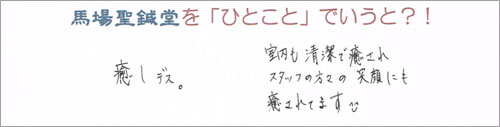 馬場聖鍼堂を「ひとこと」でいうと？！
癒しデス。
室内も清潔で癒され
スタッフの方々の笑顔にも
癒されてます